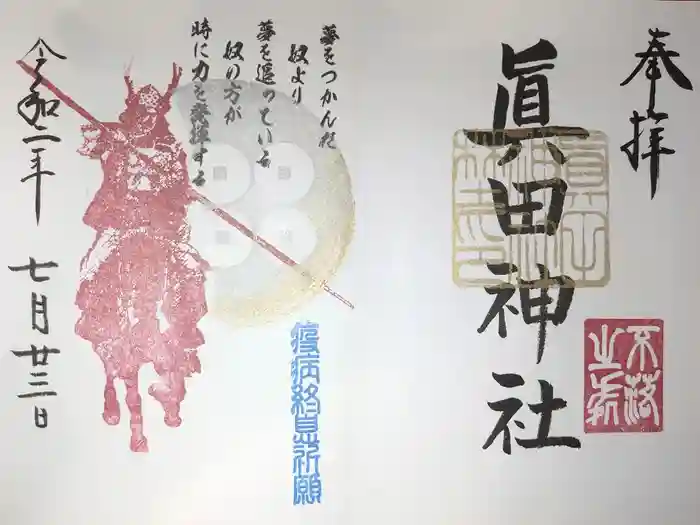 奉拝
眞田神社
不落
之砦
夢をつかんだ
奴より
夢を追っている
奴の方が
時に力を発揮する
疫病終息祈願
令和二年
七月廿三日